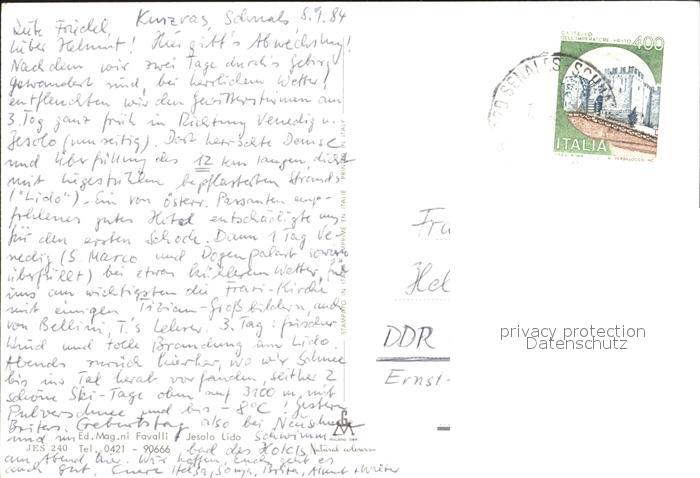 Kurzras, Schnals 8.9.84
Liebe Friedel,
lieber Helmut! Hier gibt's Abwechslung!
Nachdem wir zwei Tage durch's Gebirg
gewandert sind, bei herrlichem Wetter,
entfleuchten wir den Gewitterstürmen am
3. Tag ganz früh in Richtung Venedig u.
Jesolo (umseitig). Dort herrschte Dunst
und Überfüllung des 12 km langen, dicht
mit Liegestühlen bepflasterten Strands
("Lido"). Ein von österr. Passanten emp-
fohlenes gutes Hotel entschädigte uns
für den ersten Schock. Dann 1 Tag Ve-
nedig (S. Marco und Dogenpalast
überfüllt) bei etwas kühlerem Wetter, für
uns am wichtigsten die Frari-Kirche
mit einigen Tizian-Großbildern, auch
von Bellini, T.'s Lehrer. 3. Tag: frischer
Wind und tolle Brandung am Lido.
Abends zurück hierher, wo wir Schnee
bis ins Tal herab vorfanden, seither 2
schöne Ski-Tage oben auf 3100 m, mit
Pulverschnee und bis -8°C! Gestern
Britas Geburtstag also bei Neuschnee
und im Schwimm-
bad des Hotels
am Abend hier. Wir hoffen, Euch geht es
auch gut. Eure Helga, Sonja, Brita, + Walter
Ed. Mag.ni Favalli Jesolo Lido
JES 240 Tel. 0421 - 90666
MILANO
Natural colours
STAMPATO IN ITALIA IMPRIME EN ITALIE PRINTED IN ITALY
CASTELLO
DELL'IMPERATORE · PRATO
400
ITALIA
SENALES - SCHNA
Fra
Hel
DDR
Ernst-
privacy protection
Datenschutz